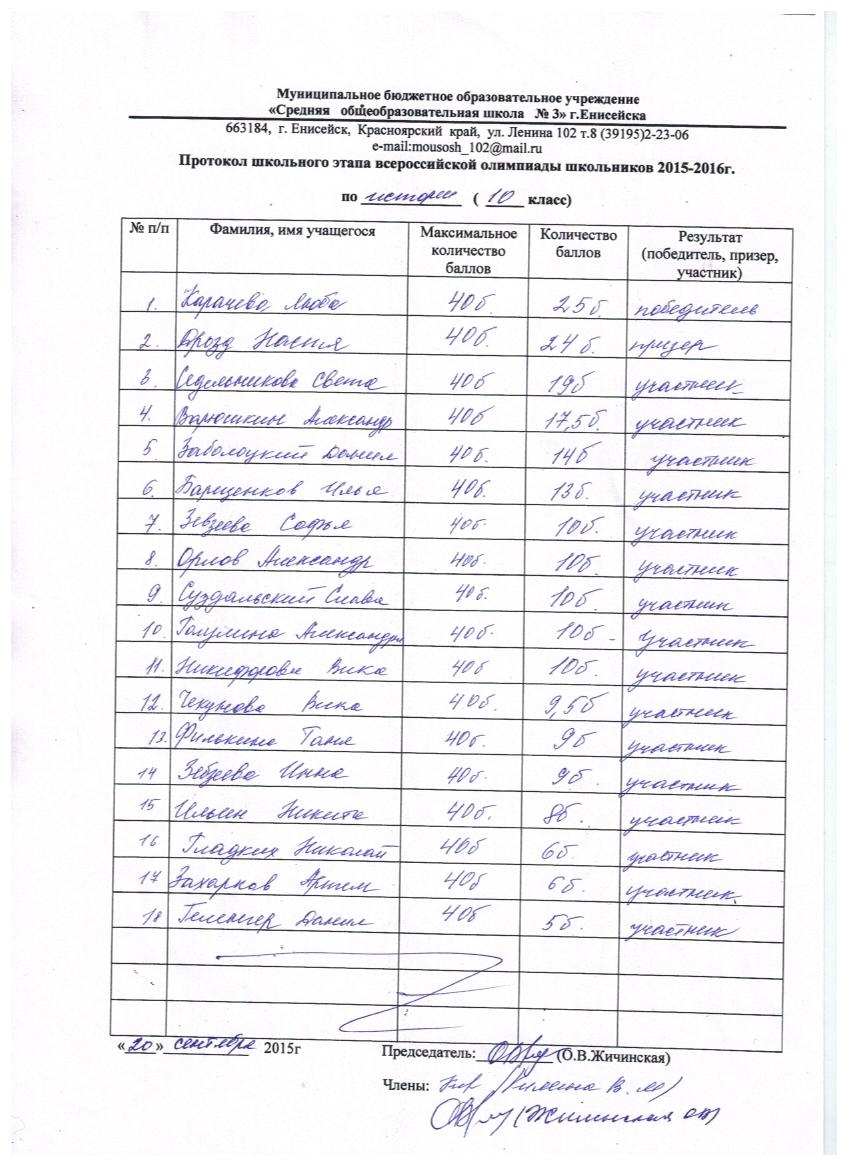 Муниципальное бюджетное образовательное учреждение
«Средняя общеобразовательная школа № 3» г.Енисейска
663184, г. Енисейск, Красноярский край, ул. Ленина 102 т.8 (39195)2-23-06
e-mail:mousosh_102@mail.ru
Протокол школьного этапа всероссийской олимпиады школьников 2015-2016г.
по истории ( 10 класс)
№ п/п Фамилия, имя учащегося Максимальное количество баллов Количество баллов Результат (победитель, призер, участник)
1. Карачева Люба 40б. 25б. победитель
2. Дрозд Настя 40б. 24б. призер
3. Седельникова Света 40б 19б участник
4. Варюшкин Александр 40б 17,5б. участник
5. Заболоцкий Данил 40б. 14б участник
6. Барцевков Илья 40б. 13б. участник
7. Зебзеева Софья 40б. 10б. участник
8. Орлов Александр 40б. 10б. участник
9. Суздальский Слава 40б. 10б. участник
10. Галулина Александра 40б. 10б - Участник
11. Никифорова Вика 40б 10б. участник
12. Чекунова Вика 40б. 9,5б участник
13. Филькина Таня 40б. 9б участник
14 Зебзеева Инна 40б. 9б. участник
15 Ильин Никита 40б. 8б. участник
16 Гладких Николай 40б 6б. участник
17 Захарков Артем 40б 6б. участник.
18 Геленгер Данил 40б 5б. участник
«20» сентября 2015г Председатель: (О.В.Жичинская)
Члены: В. М)
(Жичинская ОВ)